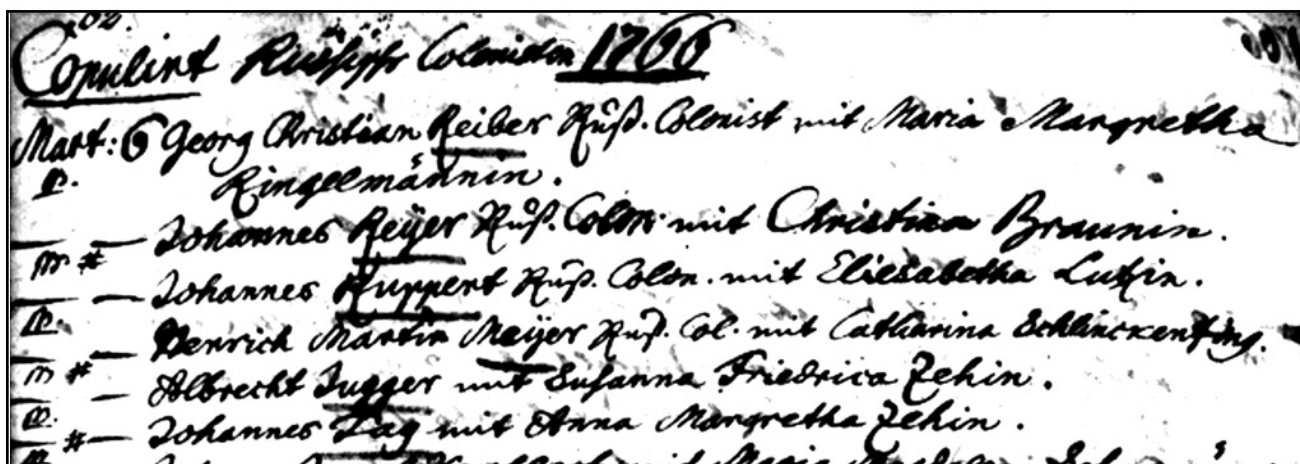 Copulirt Rußische Colonisten 1766
Mart: 6 Georg Christian Reiber Ruß. Colonist mit Maria Margretha
Ringelmännin.
Johannes Reÿer Ruß. Colon. mit Christina Braunin.
Johannes Ruppert Ruß. Colon. mit Eliesabetha Lutzin.
Henrich Martin Meÿer Ruß. Col. mit Catharina
Albrecht Jugger mit Susanna Friedrica Zehin.
Johannes Tag mit Anna Margretha Zehin.
mit Maria